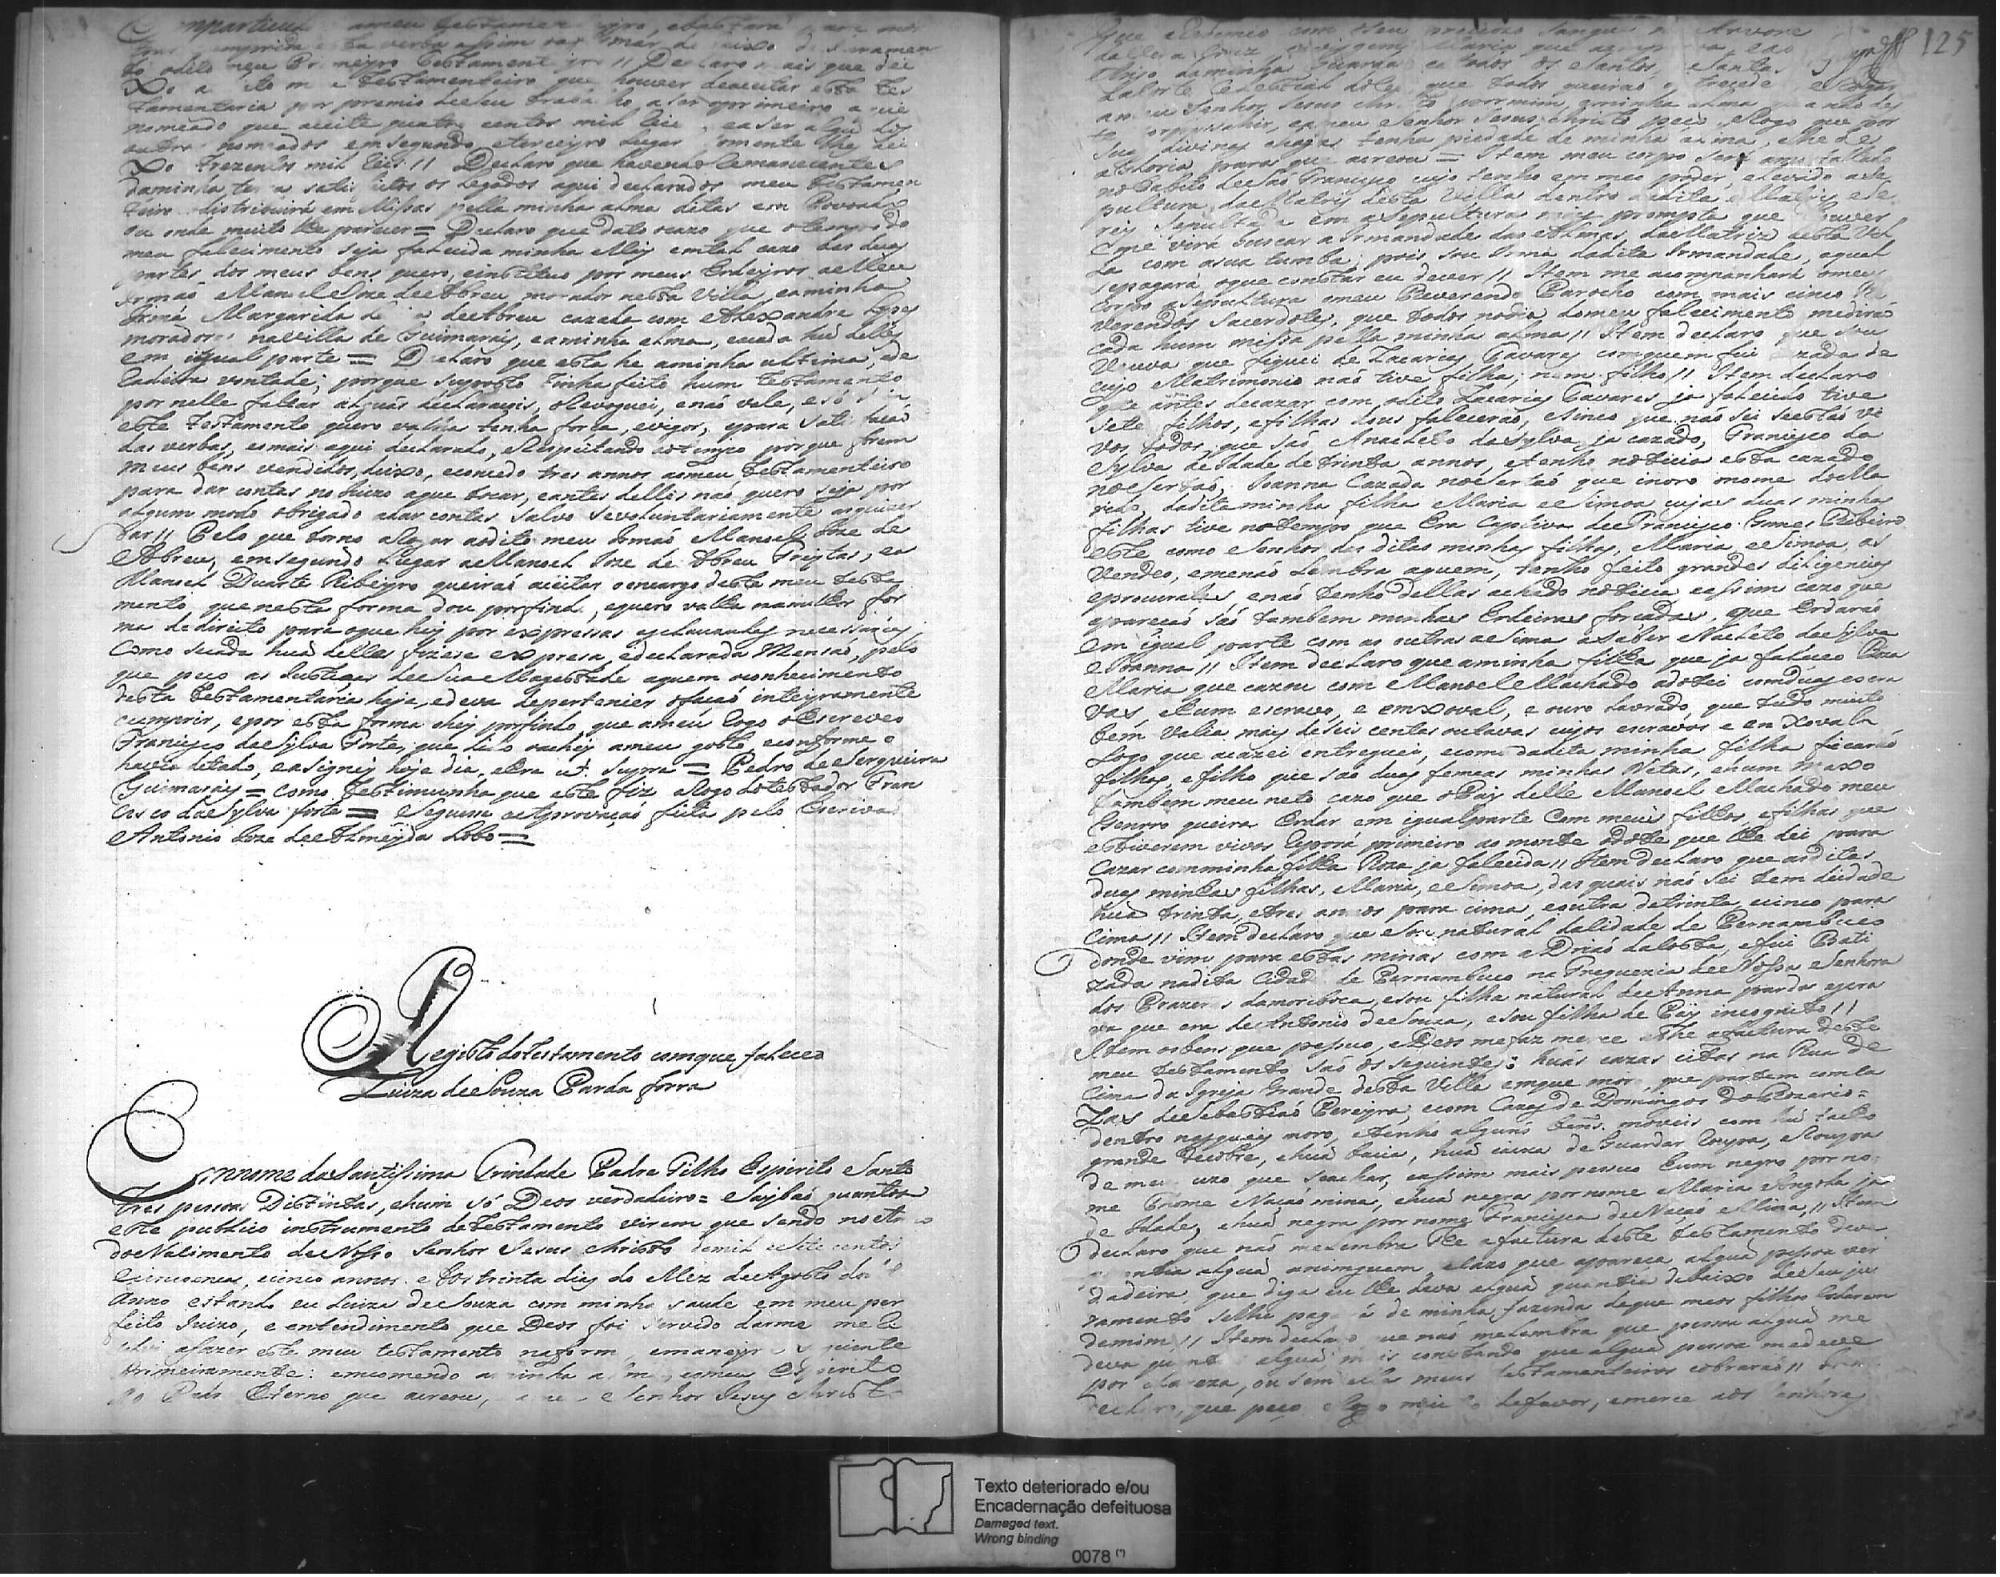 em particular a meu testamen
to odito meu Primeyro Testamenteyro // Declaro mais que dei
Xo a Testamenteiro que houver deaceitar esta tes
tamentaria por premio deseu traba lho, a ser oprimeiro
nomeado que aceite quatro centos mil Reis, easer algu dos
outros nomeados emsegundo, eterceyro lugar somente lhe dei
Xo trezentos mil Reis // Declaro que havendo Remanecentes
daminha ter a satis feitos os legados aqui declarados meu testamen
teiro distribuirá em Missas pella minha alma ditas em
ou onde muito lhe parecer = Declaro que dato cazo que otempo do
meu falecimento seja falecida minha May emtal cazo das duas
partes dos meus bens quero, einstituo por meus Erdeyros aMeu
Irmaõ Manoel Joze deAbreu, morador nesta Villa, eaminha
Irmã Margarida de deAbreu cazada com Alexandre Lopes
moradores naVilla de Guimarais, eaminha alma, cueda hũ delles
em igual parte = Declaro que esta he aminha ultima, e de
radeira vontade; porque suposto tinha feito hum testamento
por nelle faltar alguãs declarações, oRevoguei, enaõ vale, e só
este testamento quero valha tenha força, evigor, epara satis façaõ
das verbas, eomais aqui declarado, eRespeitando otempo porque forem
meus bens vendidos, deixo, econcedo tres annos aomeu testamenteiro
para dar contas noJuizo aque tocar, eantes delles naõ quero seja por
algum modo obrigado adar contas salvo sevoluntariamente asquizer
dar // Pelo que torno aRogar aodito meu Irmaõ Manoel Joze de
Abreu, emsegundo Lugar aManoel Joze de Abreu Freytas, ea
Manoel Duarte Ribeyro queiraõ aceitar oencargo deste meu testa
mento, quenesta forma dou porfindo, equero valha namilhor for
ma dedireito para oque hey por expressas asclauzulas necessarias
Como secada huã dellas fizese expresa, edeclarada Mensaõ, pelo
que peço as Justiças deSua Magestade aquem oconhecimento
desta testamentaria haja, edeva depertencer ofaçaõ inteyramente
cumprir, epor esta forma ohey porfindo, que ameu Rogo oEscreveo
Francisco daSylva Forte, que lido oachey ameu gosto, econforme o
havia ditado, easigney hoje dia, eEra ut Supra = Pedro deSerqueira
Guimarais = Como testimunha que este fiz aRogo dotestador Fran
cisco daSylva forte = Eseguese aAprovaçaõ feita pelo Escrivaõ
Antonio Joze deAlmeyda Lobo =
Registo dotestamento comque faleceo
Luiza deSouza Parda forra
Em nome daSantissima Trindade Padre Filho Espirito Santo
tres pessoas Distintas, ehum só Deos verdadeiro = Saybaõ quantos
este publico instrumento detestamento virem que sendo noAnno
doNascimento deNosso Senhor Jesus Christo demil esete centos
ecincoenta, ecinco annos. eaos trinta dias do Mez deAgosto do
Anno estando eu Luiza deSouza com minha saude em meu per
feito Juizo, e entendimento que Deos foi servido darme
afazer este meu testamento naforma, emaneyra seguinte
Primeiramente: emcomendo aminha alma, eomeu Espirito
Ao Padre Eterno que acreou, Senhor Jesus Christo
125
que aRemio com seu precioso Sangue na Arvore
dellaa Cruz Virgem Maria que
Anjo daminha guarda ea todos os Santos, eSantas
daCorte Celestial dita que todos queiraõ enterceder, eRogar
ameu Senhor Jesus Christo pormim, eminha alma
Corposahir, eameu eSenhor Jesus Christo peço, eRogo que por
sua divinas chagas tenha piedade de minha alma, elhe dê
aGloria para que acreou = Item meu corpo será amortalhado
noHabito deSaõ Francisco cujo tenho em meu poder, elevado aSe
pultura daMatris desta Villa dentro adita Matris, ese
rey Sepultada em aSepultura mais prompta que houver
eme virá buscar aIrmandade das Almas, daMatriz desta Vil
La com asua tumba, pois sou Irmã dadita Irmandade, aqual
sepagará oque constar eu dever // Item me acompanhará omeu
Corpo aSepultura omeu Reverendo Parocho com mais cinco Re
verendos Sacerdotes, que todos nodia domeu falecimento medirão
cada hum missa pella minha alma // Item declaro que sou
Viuva que fiquei de Zacarias Tavares comquem fui cazada de
cujo Matrimonio naõ tive filha, nem filho // Item declaro
que antes decazar com odito Zacarias Tavares ja falecido tive
Sete filhos, efilhas dous falecerão, eSinco que naõ sei seestaõ vi
vos todos, que saõ Anacleto daSylva ja cazado, Francisco da
Sylva deIdade detrinta annos, etenho noticia esta cazado
noSertaõ, Joanna Cazada noSertaõ que inoro onome doSeu
mais, dadita minha filha Maria eSimoa cujas duas minhas
filhas tive notempo que Era Captiva deFrancisco Gomes Ribeiro
este como Senhor das ditas minhas filhas, Maria, eSimoa, as
Vendeo, emenaõ Lembra aquem, tenho feito grandes diligencias
eprocuralas, enaõ tenho dellas achado noticia easim cazo que
apareçaõ saõ tambem minhas Erdeiras forçadas, que Erdaraõ
em igual parte com os outros aSima aSaber Nacleto daSylva
eJoanna // Item declaro queaminha filha que ja faleceo Roza
Maria que cazou com Manoel Machado adotei comduas escra
vas, ehum escravo, e emxoval, e ouro Lavrado, que tudo muito
bem Valia mais deseis centas outavas cujos escravos e enxoval
Logo que acazei entreguei, ecomo dadita minha filha ficaraõ
filhas, efilho que saõ duas femeas minhas Netas, ehum Maxo
tambem meu neto cazo que oPay delle Manoel Machado meu
Genrro queira Erdar em igualparte Com meus filhos, efilhas que
estiverem vivos Reporá primeiro ao monte odote que lhe dei para
Cazar comminha filha Roza ja falecida // Item declaro que asditas
duas minhas filhas, Maria, eSimoa, das quais naõ sei tem deidade
huã trinta, etres annos para cima, eoutra detrinta, ecinco para
Cima // Item declaro que eSou natural daCidade de Pernambuco
donde vim para estas minas com aDriaõ daCosta, efui Bati
zada nadita Cidade de Pernambuco na Freguezia deNossa eSenhora
dos Prazeres damoriboca, esou filha natural deAnna parda escra
va que era deAntonio deSouza, eSou filha de Pay incognito //
Item osbens que pesuo, eDeos mefaz merce athe afactura deste
meu testamento saõ os seguintes: huãs cazas citas na Rua de
Cima da Igreja Grande desta Villa emque moro, que partem comCa
Zas deSebastiaõ Pereyra, ecom Cazas de Domingos doRozario =
dentro nasquais moro, etenho alguns bens moveis com hũ tacho
grande deCobre, ehuã bacia, huã caixa de Guardar Roupa, eRoupa
de meu uzo que seachar, eassim mais pesuo hum negro por no
me Thome Naçaõ mina, ehuã negra por nome Maria Angola ja
de Idade, ehuã negra por nome Francisca deNaçaõ Mina // Item
declaro que naõ melembra the afactura deste testamento deva
quantia alguã aninguem, eCazo que apareça alguã pessoa ver
dadeira, que diga eu lhe deva alguã quantia debaixo deSeu ju
ramento selhe pagará de minha fazenda daque meos filhos Erdarem
demim // Item declaro que naõ melembra que pessoa alguã me
deva quantia alguã mais constando que alguã pessoa medeve
por clareza, ou sem ella meus testamenteiros cobraraõ // Item
declaro, que peço, eRogo de favor, emerce aos Senhores
Texto deteriorado e/ou
Encadernação defeituosa
Damaged text.
Wrong binding
0078 (*)